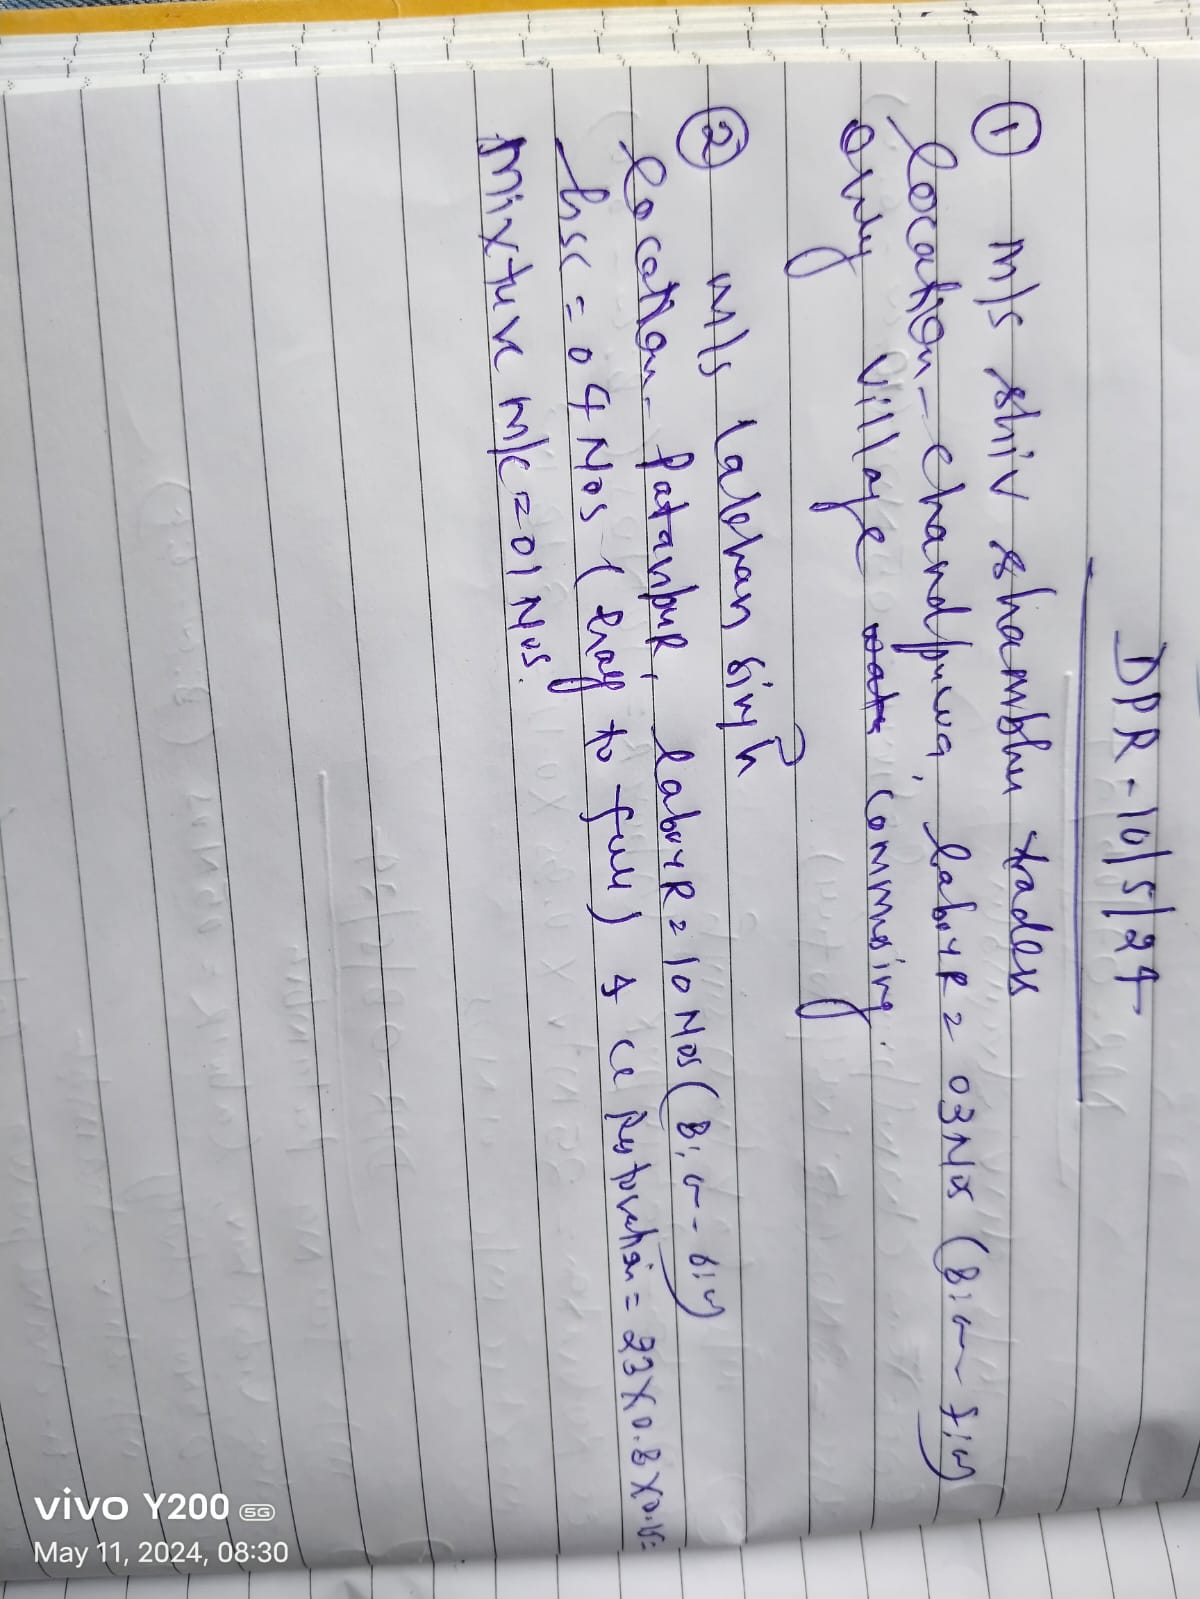 DPR - 10/5/24
① M/s Shiv Shambhu traders
Location - Chandpura, Labour = 03 Nos
only village commissing.
② M/s Lakhan Singh
Location - Patanpur, Labour = 10 Nos
hsc = 04 Nos ( to ) & cc Restoration = 23 X 0.8 X 0.15 =
Mixture M/c = 01 Nos.
vivo Y200 5G
May 11, 2024, 08:30